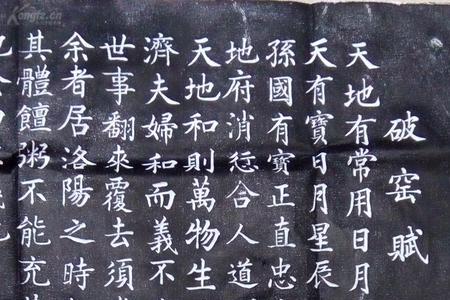 破窑賦
天地有常用日月
天有寶日月星辰
孫國有寶正直忠
地府消愆合人道
天地和則萬物生
濟夫婦和而義不
世事翻來覆去須
余者居洛陽之時
其體饘粥不能充
Kongfz.cn